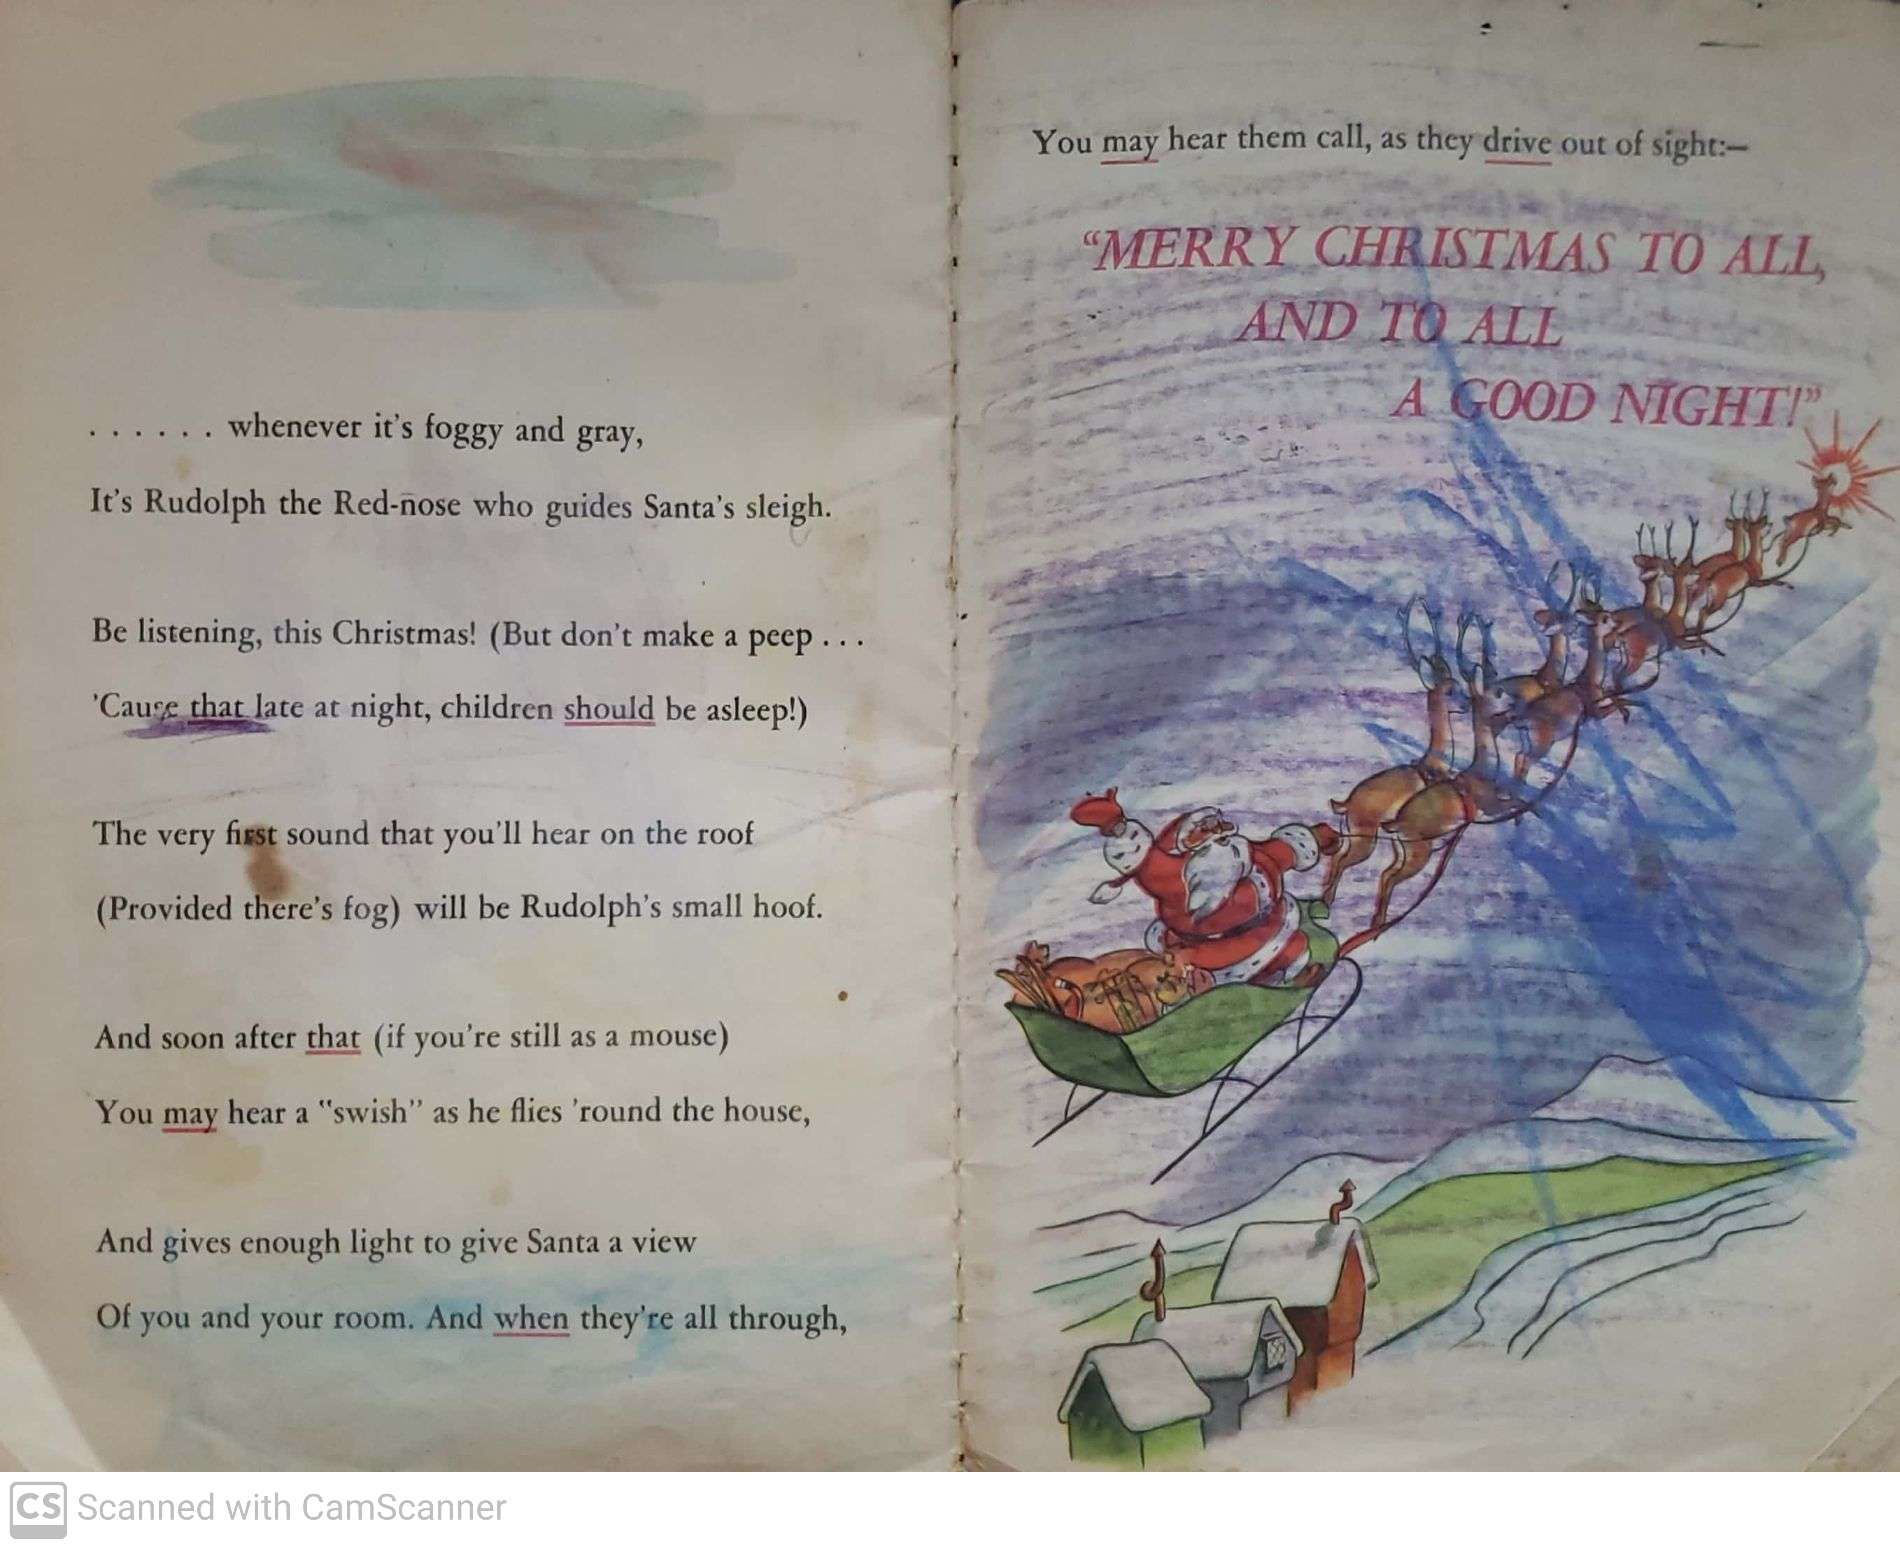 . . . . . . whenever it's foggy and gray,
It's Rudolph the Red-nose who guides Santa's sleigh.
Be listening, this Christmas! (But don't make a peep . . .
'Cause that late at night, children should be asleep!)
The very first sound that you'll hear on the roof
(Provided there's fog) will be Rudolph's small hoof.
And soon after that (if you're still as a mouse)
You may hear a "swish" as he flies 'round the house,
And gives enough light to give Santa a view
Of you and your room. And when they're all through,
You may hear them call, as they drive out of sight:—
“MERRY CHRISTMAS TO ALL,
AND TO ALL
A GOOD NIGHT!”
CS Scanned with CamScanner